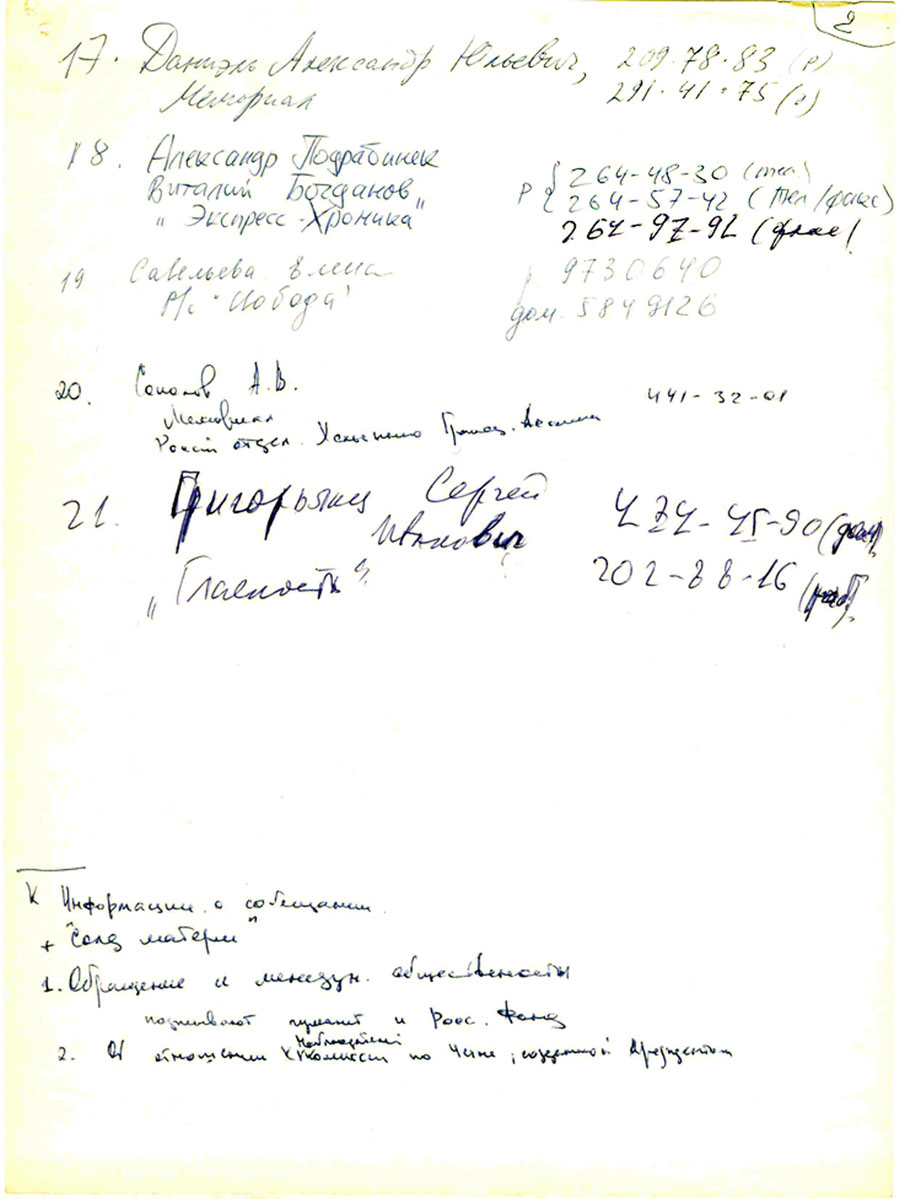 2
17. Даниэль Александр Юльевич, 209.78.83 (р)
Мемориал 291.41.75 (д)
18. Александр Подрабинек
Виталий Богданов р { 264-48-30 (тел.)
"Экспресс-Хроника" 264-57-42 (тел/факс)
264-97-92 (факс)
19 Савельева Елена р 9730640
Р/с "Свобода" дом. 5849126
20. Соколов А.В. 441-32-01
Мемориал
отдел.
21. Григорьянц Сергей 474-45-90 (дом)
Иванович
"Гласность" 202-88-16 (раб)
К Информации о совещании
+ "Солд матери"
1. Обращение к междун. общественности
подписывают и Росс. Фонд
2. Об отношении к комиссии по Чечне, созданной Президентом
наблюдателей